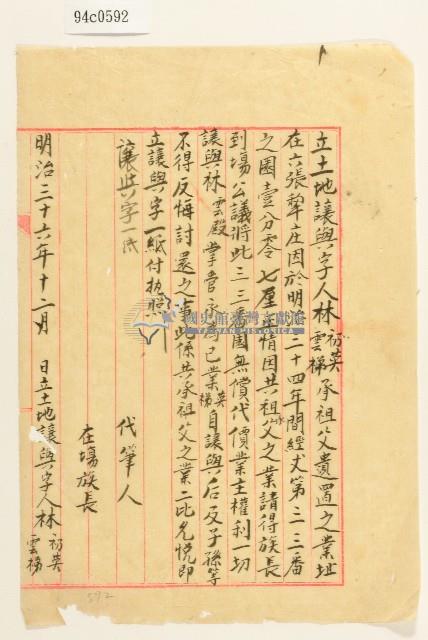 94c0592
立土地讓與字人林初英雲梯承祖父遺置之業址
在六張犁庄因於明治三十四年間經丈第三三番
之園壹分零七厘 情因共祖父之業請得族長
到塲公議將此三三番園無償代價業主權利一切
讓與林雲殿掌管永為己業英梯自讓與后及子孫等
不得反悔討還之事此係共承祖父之業二比允悅即
立讓與字一紙付执照
讓與字一紙
代筆人
在塲族長
明治三十六年十二月 日立土地讓與字人林初英雲梯
國史館臺灣文獻館
TAIWAN HISTORICA
592